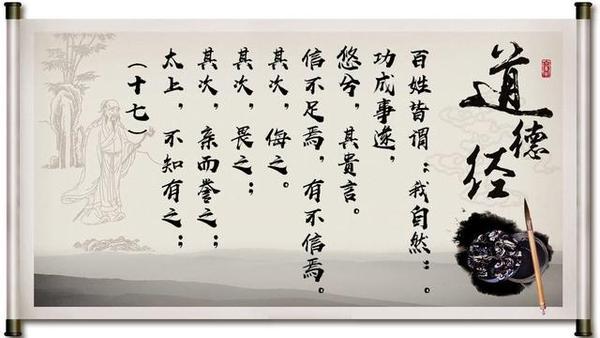 道德经
（十七）
太上，不知有之；
其次，亲而誉之；
其次，畏之；
其次，侮之。
信不足焉，有不信焉。
悠兮，其貴言。
功成事遂，
百姓皆谓：我自然：。